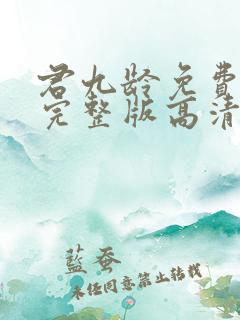 君九龄免費
完整版高清
藍蚕
未経同意禁止转載